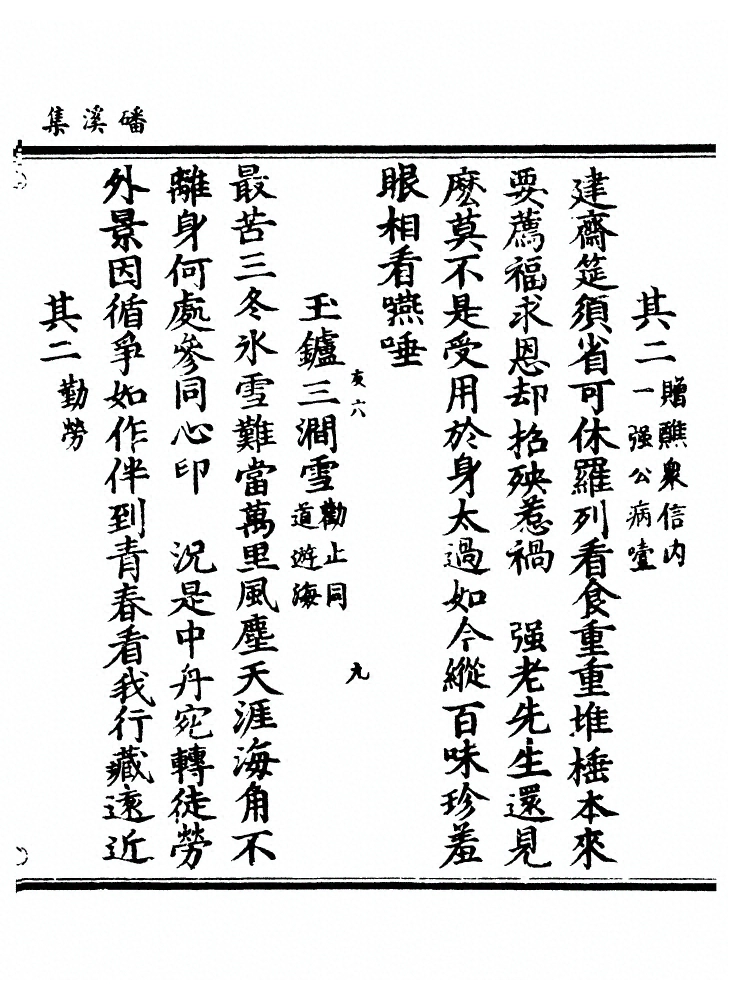 磻溪集
其二贈醮衆信内一强公病噎
建齋筵須省可休羅列看食重重堆棰本來
要薦福求恩却招殃惹禍　强老先生還見
麽莫不是受用於身太過如今縱百味珍羞
眼相看嚥唾
亥六
九
玉鑪三澗雪勸止同道遊海
最苦三冬氷雪難當萬里風塵天涯海角不
離身何處參同心印　況是中丹宛轉徒勞
外景因循爭如作伴到青春看我行藏遠近
其二勤勞